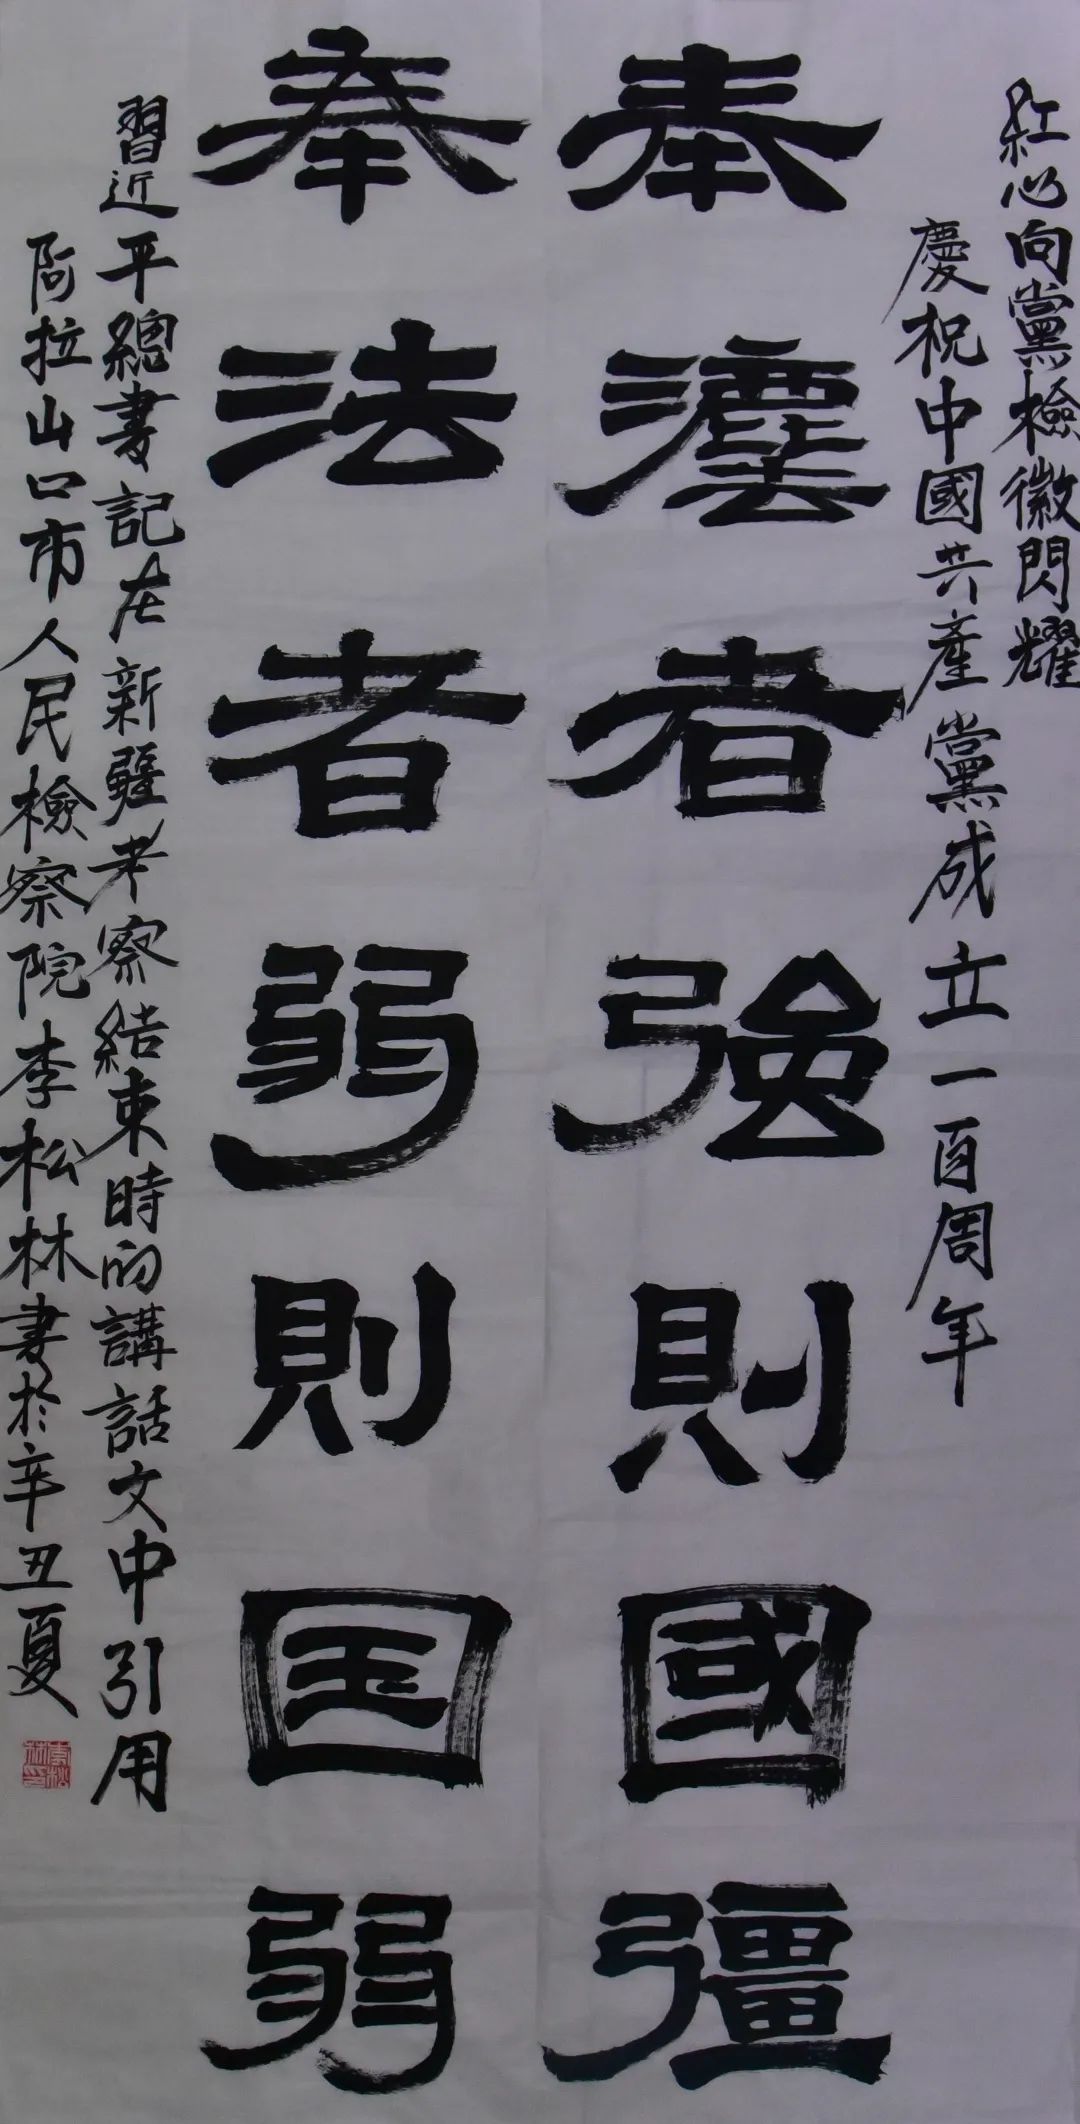 紅心向黨檢徽閃耀
慶祝中國共產黨成立一百周年
奉灋者強則國彊
奉法者弱則国弱
習近平總書記在新疆考察結束時的講話文中引用
阿拉山口市人民檢察院李松林書於辛丑夏
李松林印